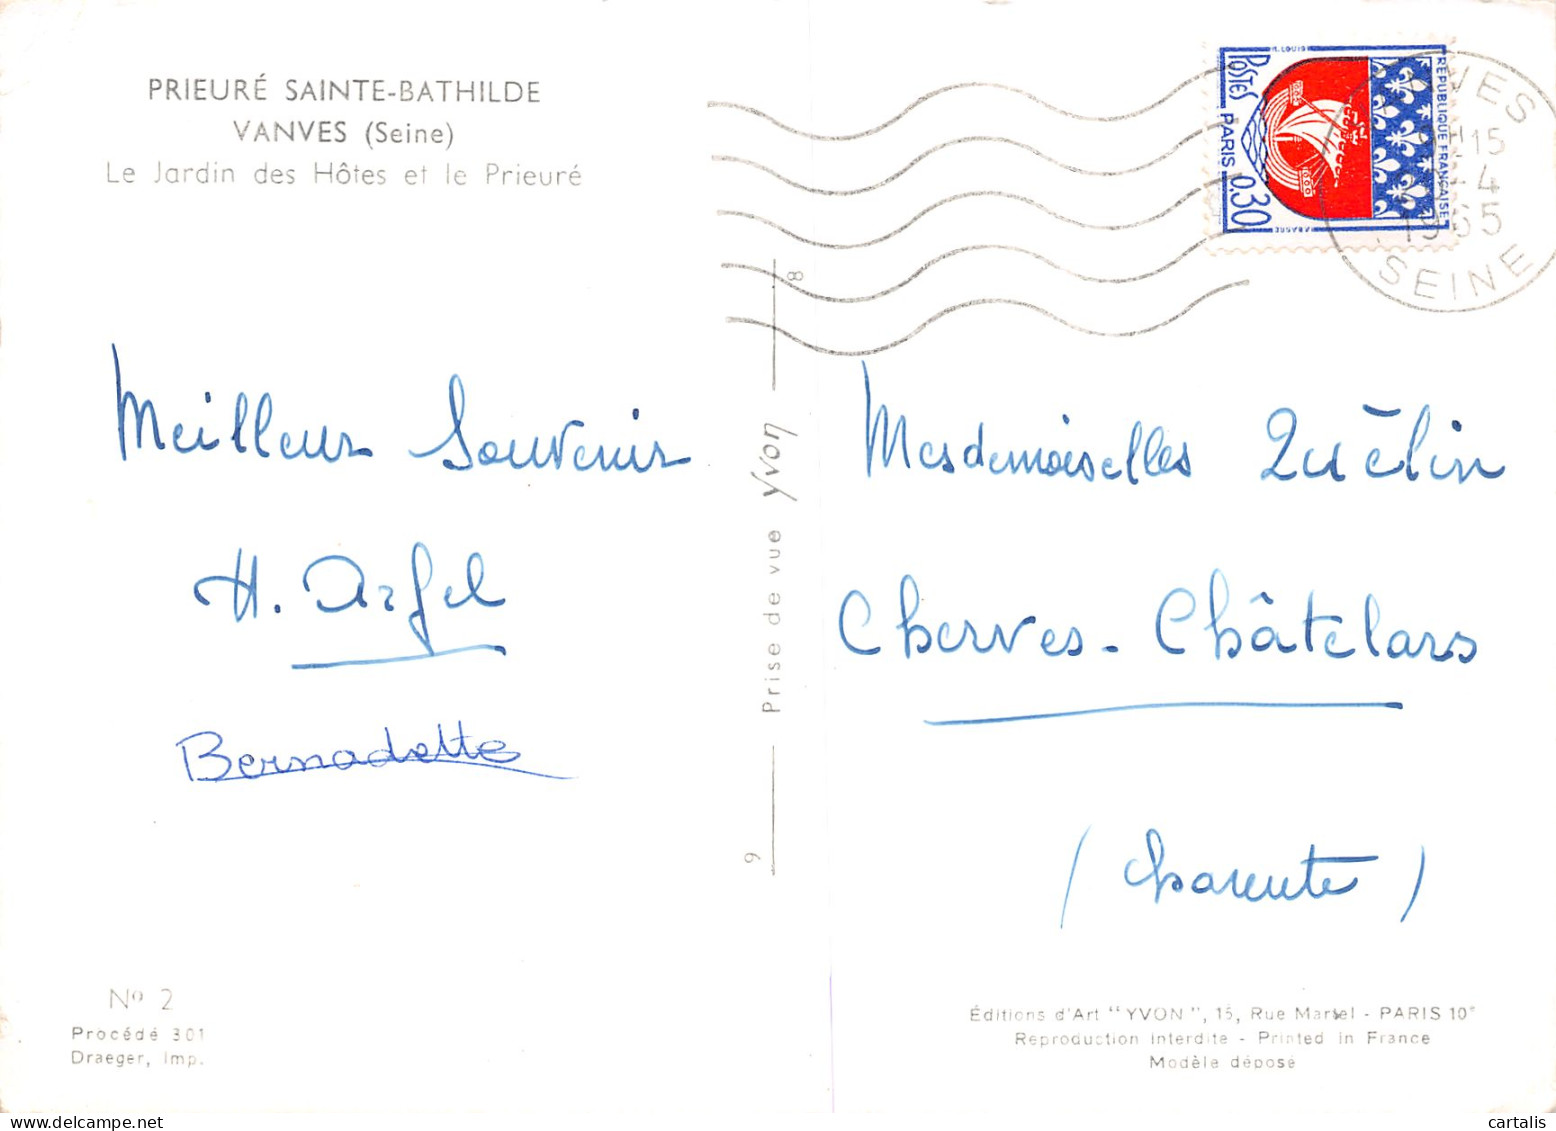 PRIEURÉ SAINTE-BATHILDE
VANVES (Seine)
Le Jardin des Hôtes et le Prieuré
Meilleur Souvenir
H. Argel
Bernadette
Nº 2
Procédé 301
Draeger, Imp.
9 Prise de vue Yvon 8
M. LOUIS
POSTES
PARIS 0,30
RÉPUBLIQUE FRANÇAISE
VES
15
4
1965
SEINE
Mesdemoiselles Quélin
Cherves-Châtelars
(Charente)
Éditions d'Art "YVON", 15, Rue Martel - PARIS 10e
Reproduction interdite - Printed in France
Modèle déposé
cartalis